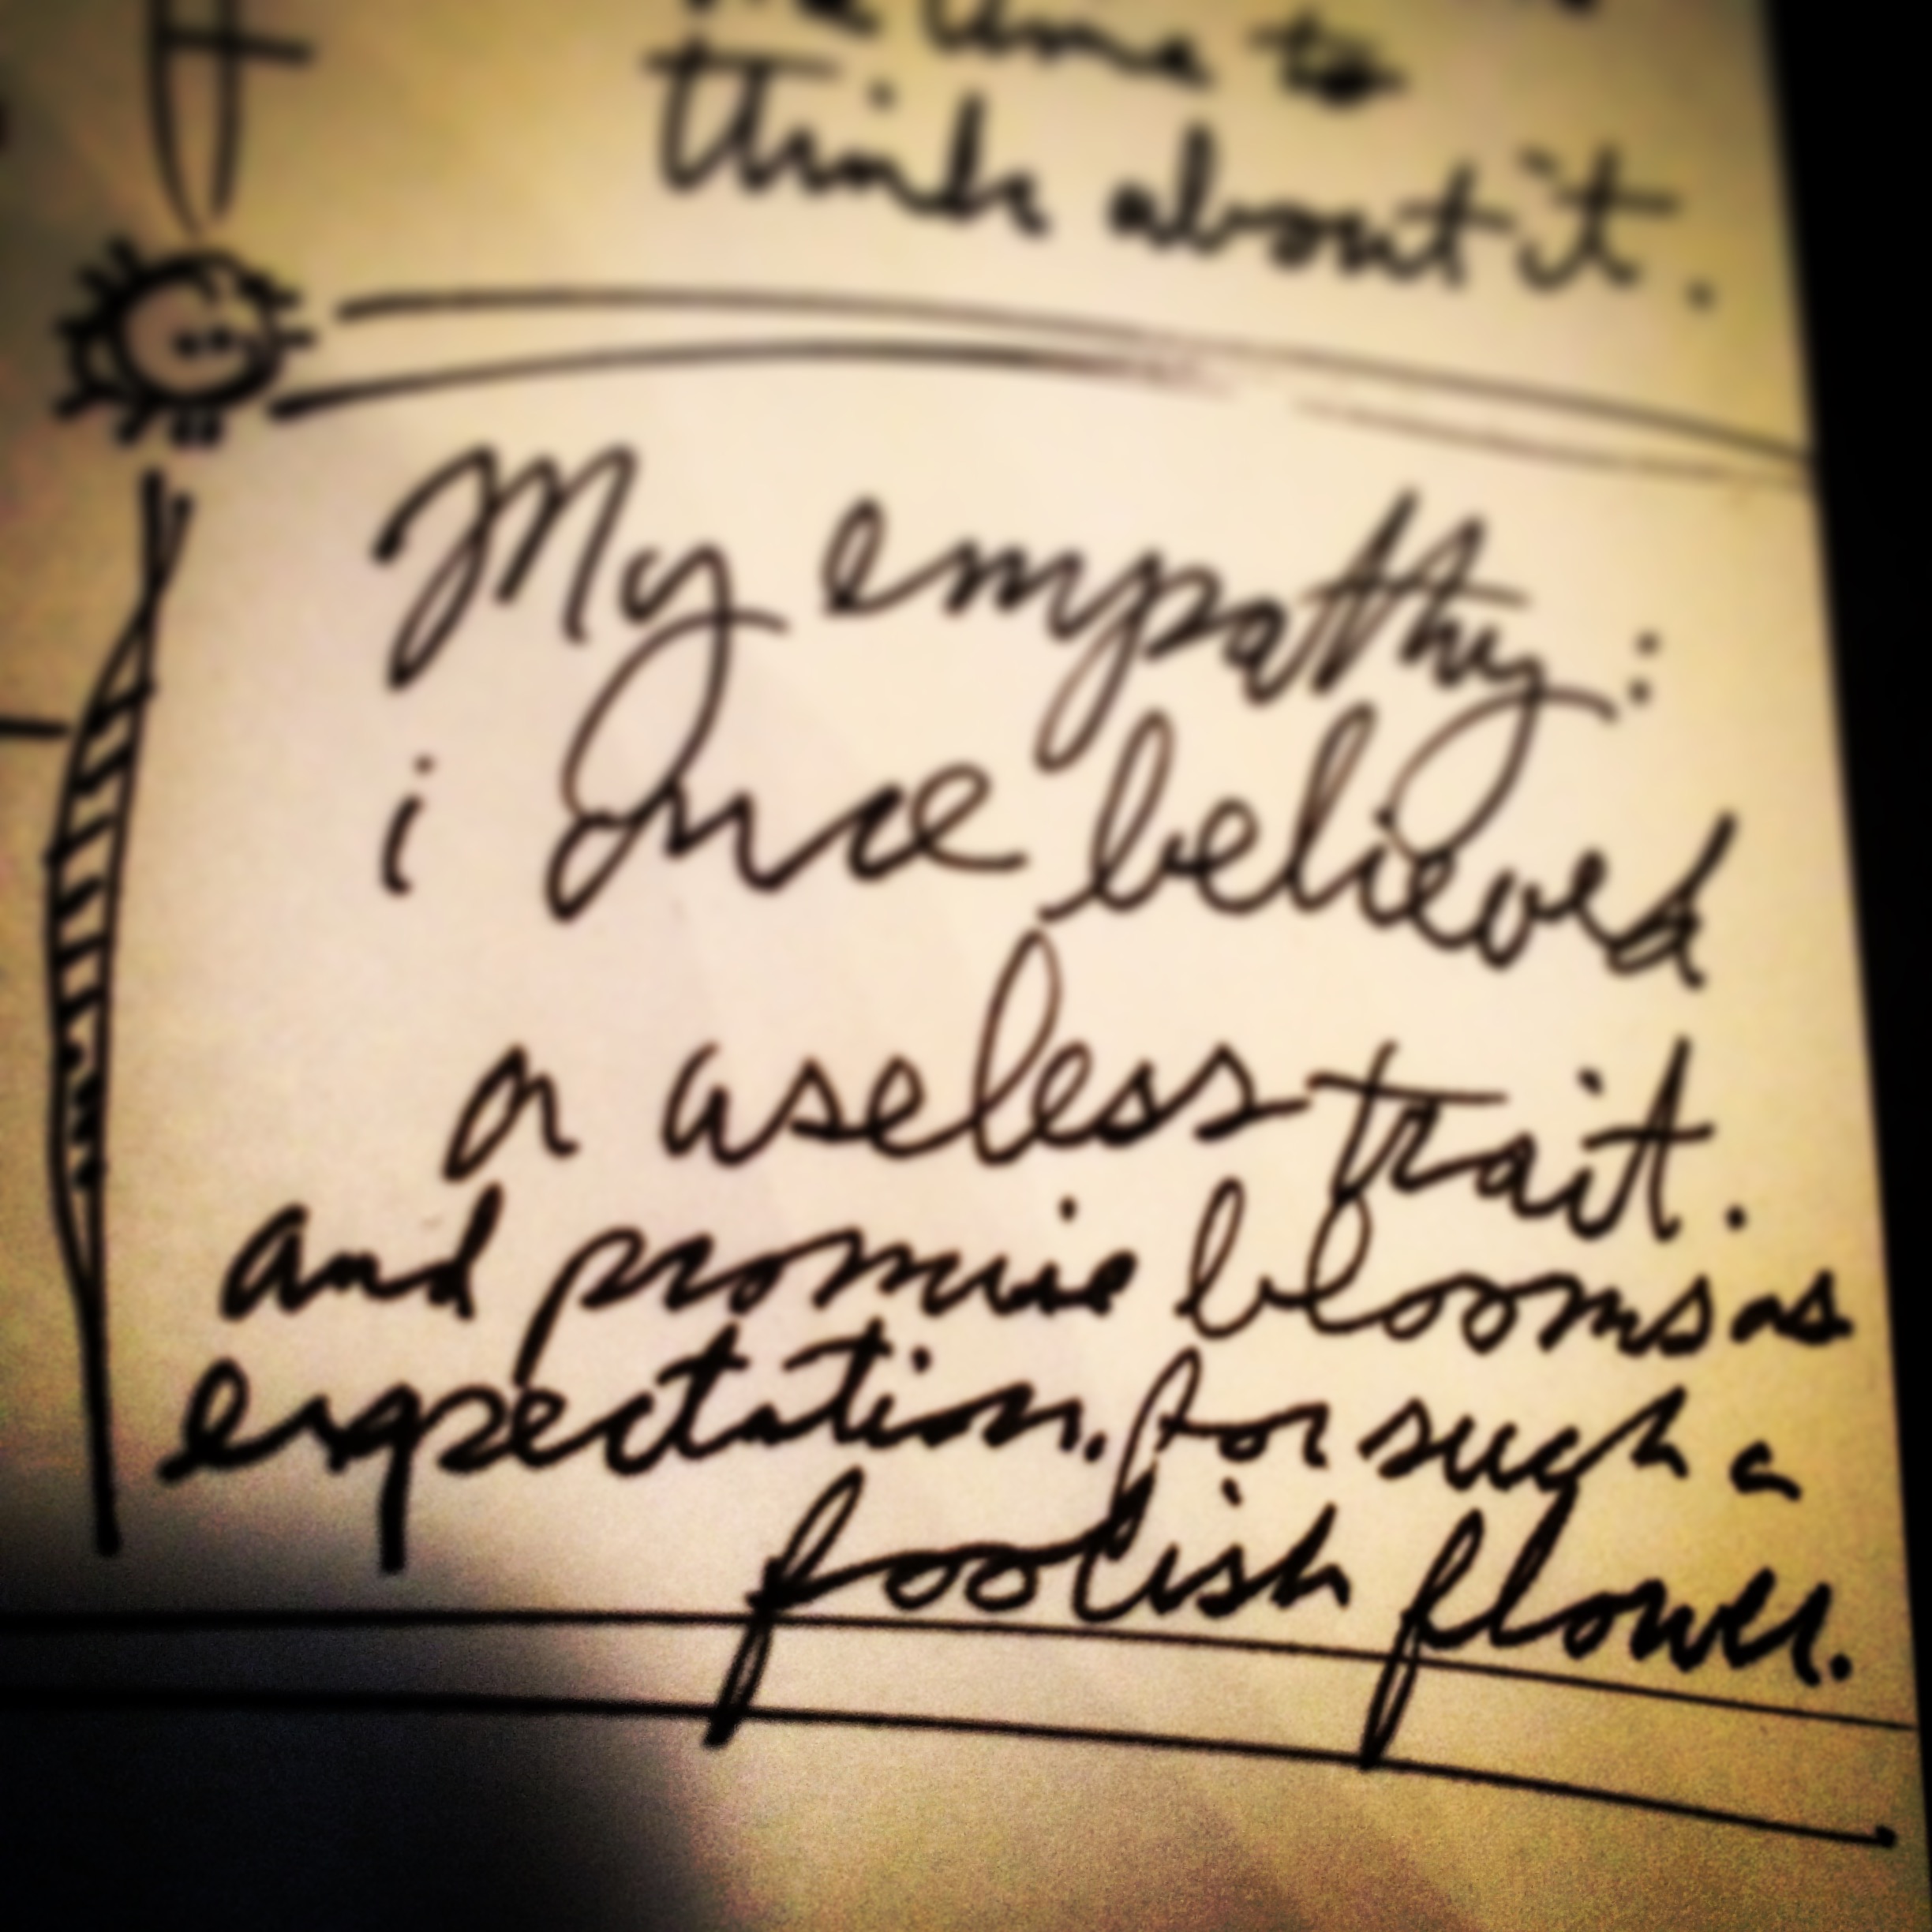 time to
think about it.
My empathy:
i once believed
a useless trait.
and promise blooms as
expectation. for such a
foolish flower.